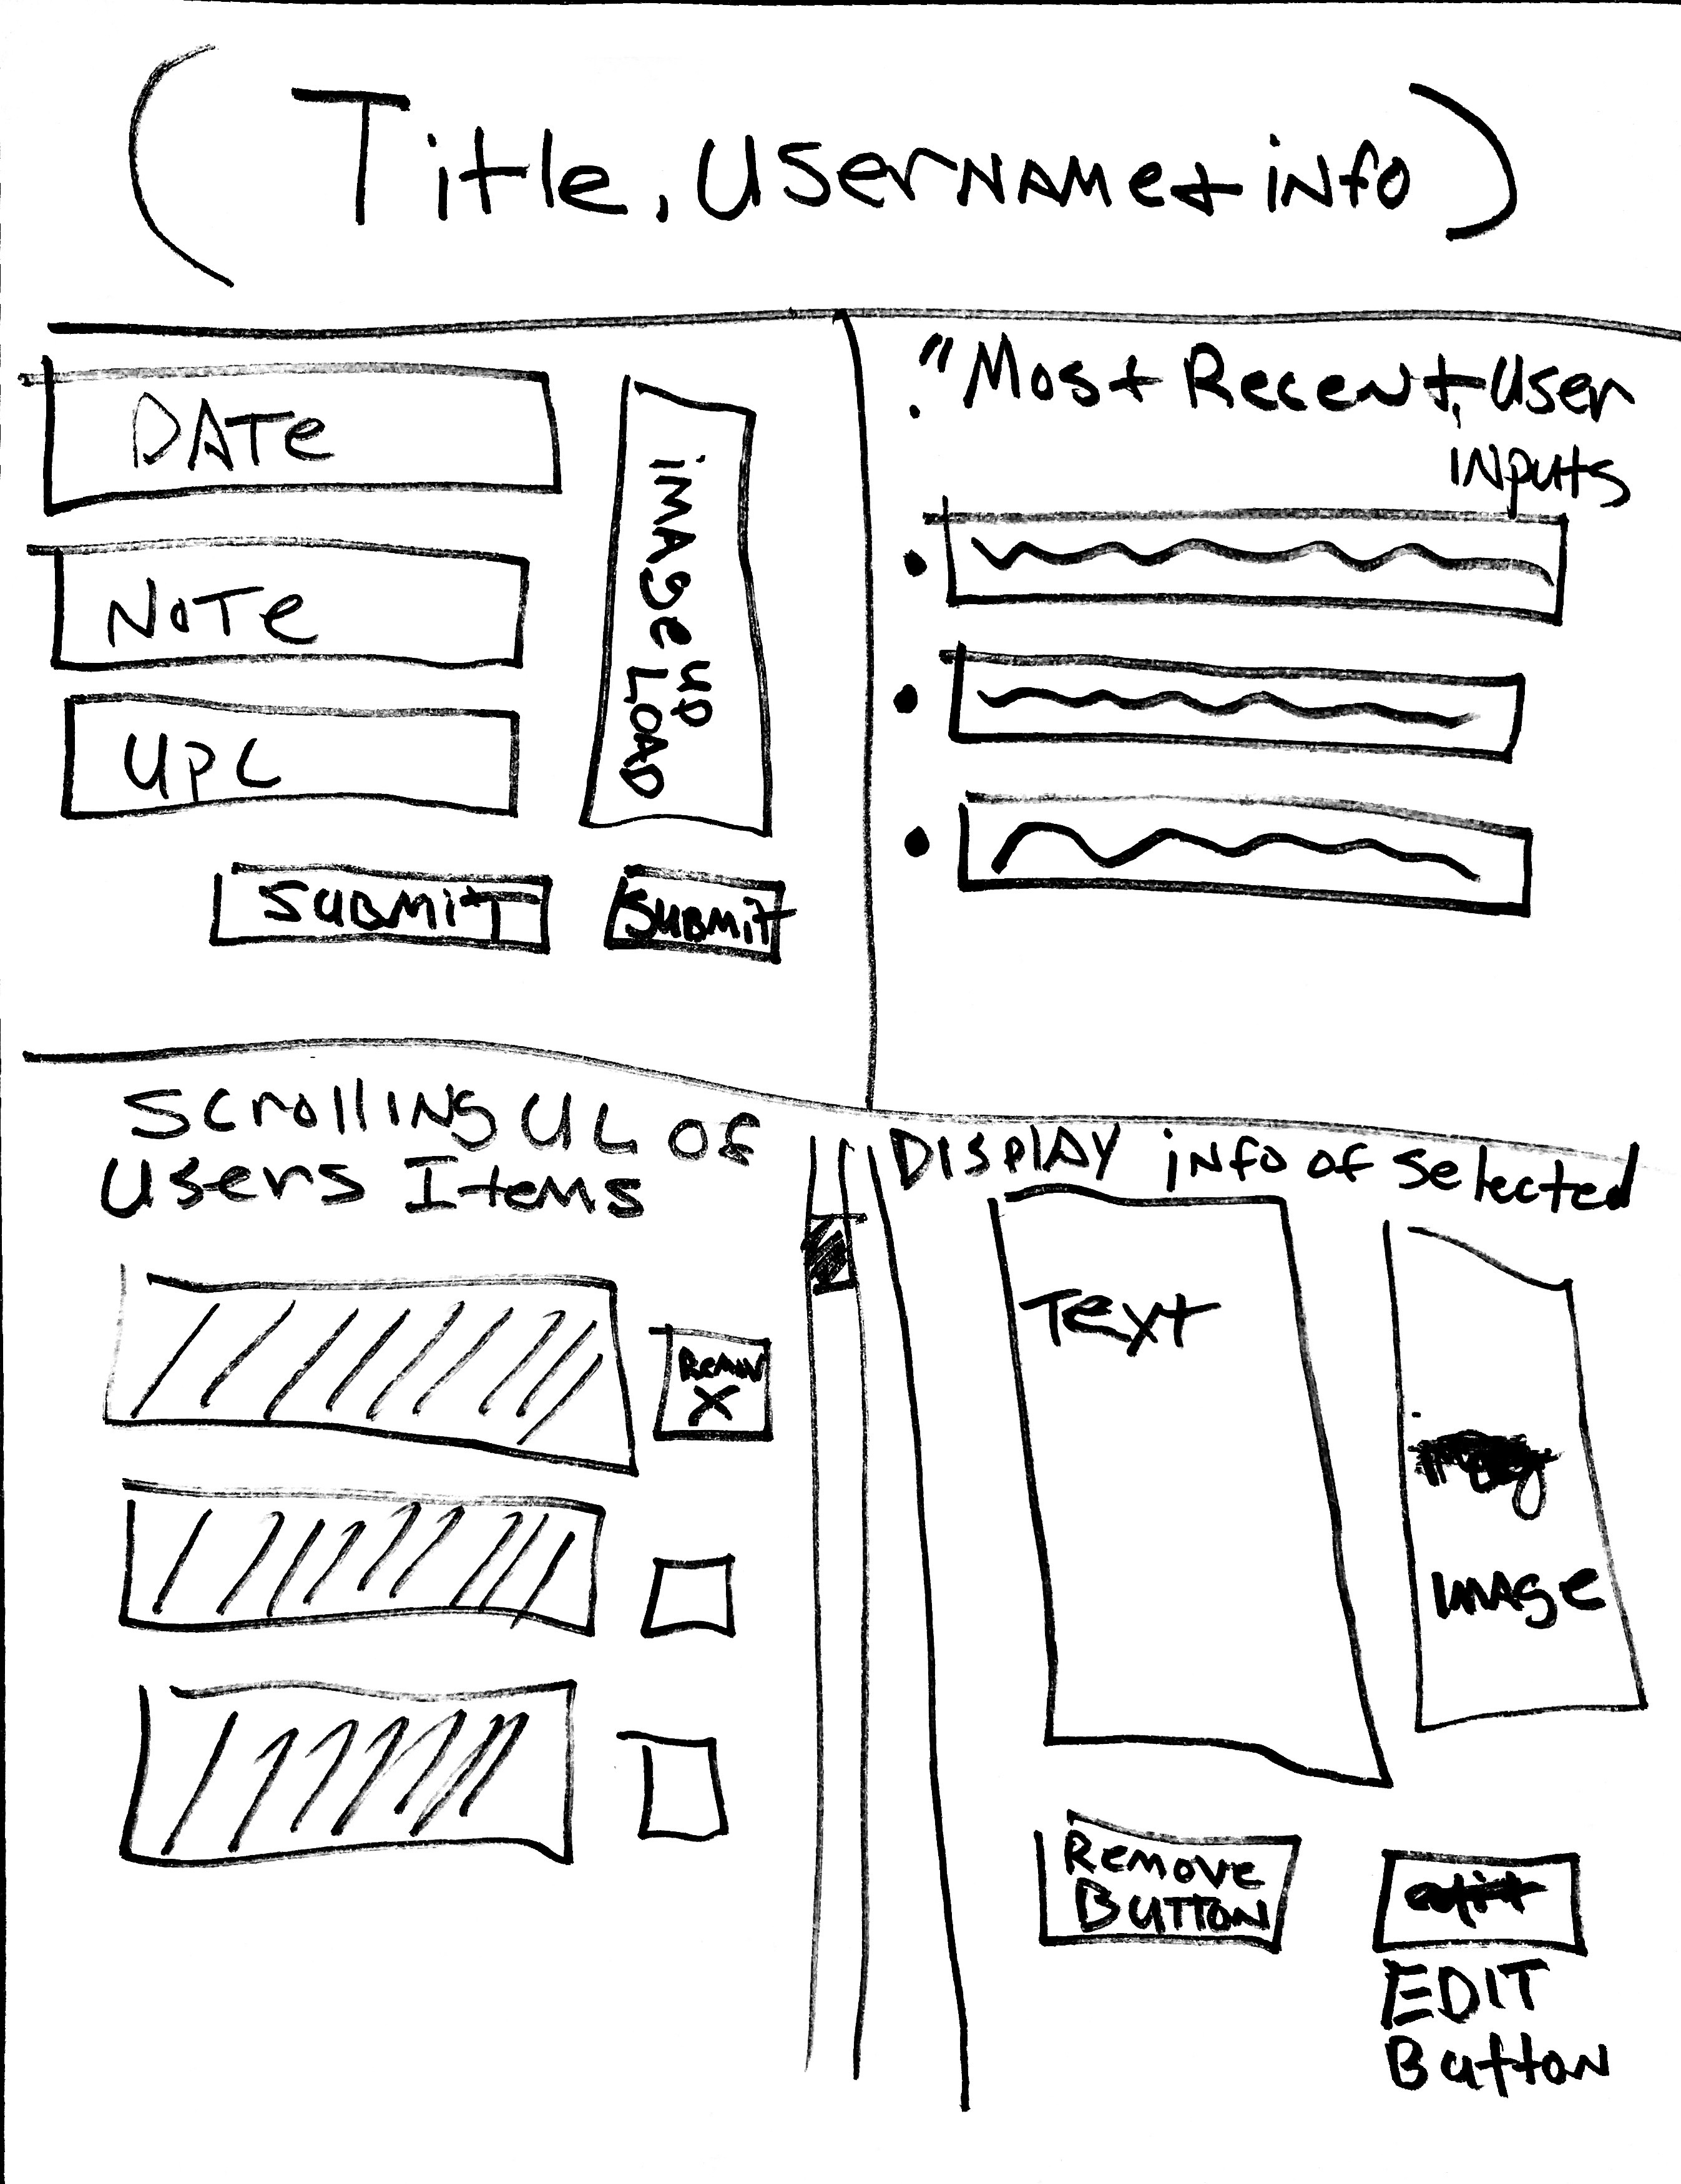 (Title, Username + info)
DATE
NOTE
UPC
IMAGE UP
LOAD
SUBMIT
SUBMIT
"Most Recent, User
INputs
Scrolling UL OF
Users Items
Remov
X
DISPLAY info of selected
Text
IMAGE
Remove
BUTTON
edit
EDIT
Button